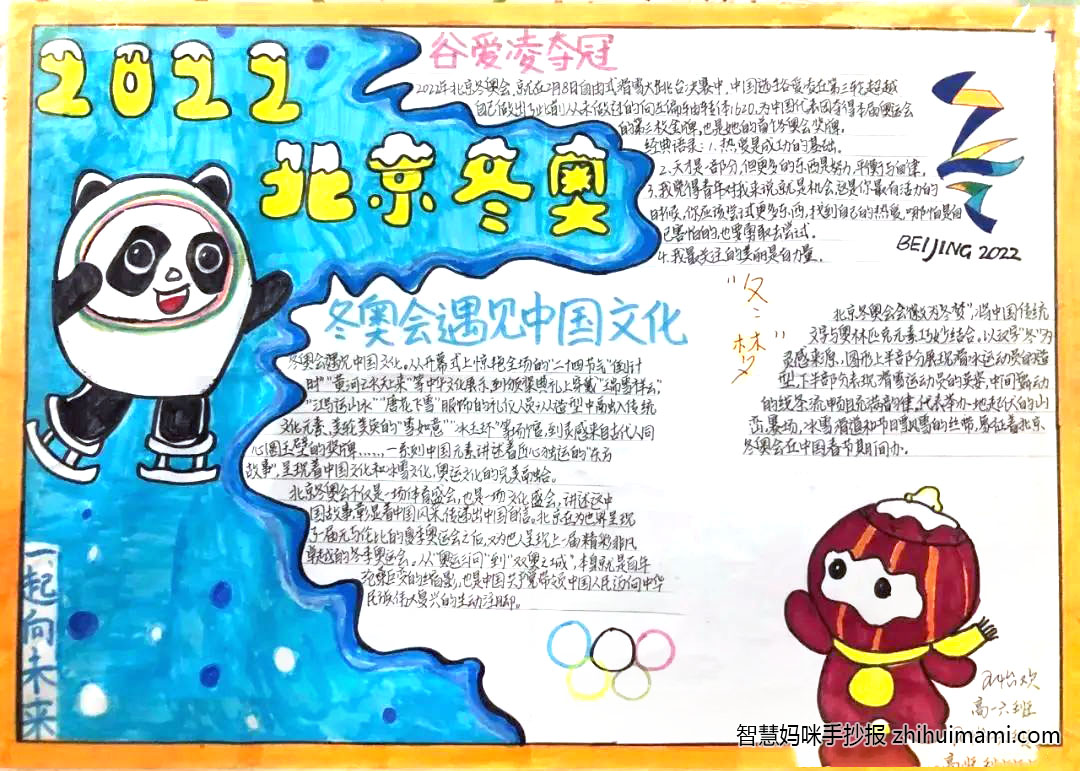 2022
北京冬奥
谷爱凌夺冠
2022年北京冬奥会,就在2月8日自由式滑雪大跳台决赛中,中国选手谷爱凌在第三轮超越
的第三枚金牌,也是她的首个冬奥会奖牌。
经典语录:1.热爱是成功的基础。
2.天才是一部分,但更多的东西是努力,平衡与自律。
3.我觉得青年对我来说就是机会,这是你最有活力的
时候,你应该尝试更多东西,找到自己的热爱,哪怕是自
己害怕的,也要勇敢去尝试。
4.我最关注的美丽是有力量。
BEIJING 2022
冬奥会遇见中国文化
冬奥会遇见中国文化。从开幕式上惊艳全场的"二十四节气"倒计
时""黄河之水天上来"等中华文化展示,到颁奖典礼上穿戴"瑞雪祥云"
"鸿运山水""唐花飞雪"服饰的礼仪人员;从造型中融入传统
文化元素、美轮美奂的"雪如意""冰玉环"等场馆,到灵感来自古代同
心圆玉璧的奖牌……一系列中国元素讲述着匠心独运的"东方
故事",呈现着中国文化和冰雪文化、奥运文化的完美融合。
北京冬奥会不仅是一场体育盛会,也是一场文化盛会,讲述着中
国故事,彰显着中国风采,传递出中国自信。北京在为世界呈现
了一届无与伦比的夏季奥运会之后,又为世人呈现上一届精彩非凡
卓越的冬季奥运会。从"奥运三问"到"双奥之城",本身就是百年
民族伟大复兴的生动注脚。
"冬梦"
北京冬奥会会徽为"冬梦",将中国传统
文字与奥林匹克元素巧妙结合,以汉字"冬"为
灵感来源,圆形上半部分展现滑冰运动员的造
型,下半部分表现滑雪运动员的英姿,中间舞动
的线条流畅且充满韵律,代表举办地起伏的山
峦、赛场、冰雪滑道和节日飘舞的丝带,象征着北京
冬奥会在中国春节期间举办。
一起向未来
高一六班
智慧妈咪手抄报 zhihuimami.com